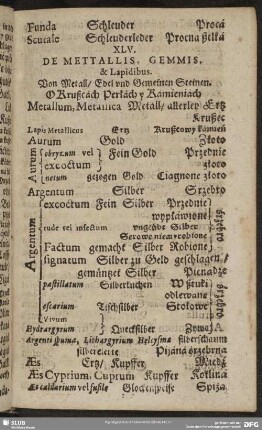 Funda Schleuder Proca
Scutale Schleuderleder Procna
XLV.
DE METTALLIS, GEMMIS,
& Lapidibus.
Von Metall/ Edel vnd Gemeinen Steinen.
O Krußcách Perłách y Kámieniách
Metallum, Metallica Metall/ allerley Ertz
Krußec
Lapis Metallicus Ertz Krußcowy kámień
Aurum Gold Złoto
Aurum obryzum vel Fein Gold Przednie
excoctum złoto
netum gezogen Gold Ciągnone złoto
Argentum Silber Srzebro
Argentum excoctum Fein Silber Przednie
wypławione
rude vel infectum Silber
Surowe nie wyrobione
Factum gemacht Silber Robione
signatum Silber zu Geld geschlagen/
gemüntzet Silber Pieniądze
pastillatum Silberkuchen W
odlewane
escarium Tischsilber Stołowe
Vivum
Hydrargyrum Quecksilber Zywe
Argenti spuma, Lithargyrum silberschaum
silberglette Piáná srzebrna
Æs Ertz/ Kupffer Miedź
Æs Cyprium, Cuprum Kupffer Kotlina
Æs caldarium vel fusile Glockenspeise Spiża
SLUB